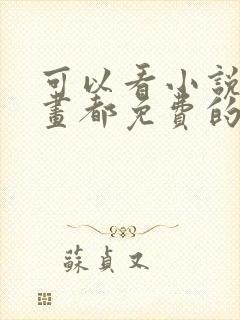 可以看小說
畫都免費的
蘇貞又